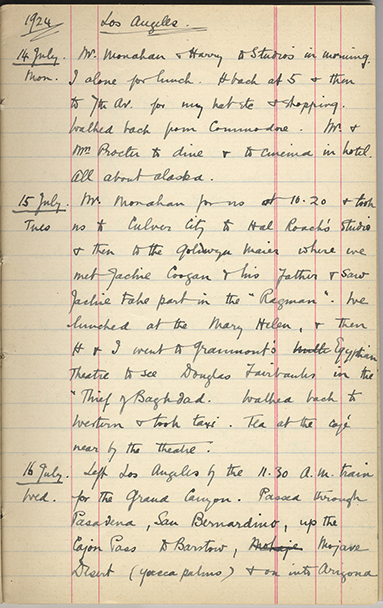 1924 Los Angeles.
14 July. Mr. Monahan & Harry to Studios in morning.
Mon. I alone for lunch. H back at 5 & then
to 7th Av. for my hat etc & shopping.
Walked back from Commodore. Mr &
Mrs Procter to dine & to cinema in hotel.
All about Alaska.
15 July. Mr. Monahan for us at 10.20 & took
Tues us to Culver City to Hal Roach's Studio
& then to the Goldwyn Maier where we
met Jackie Coogan & his Father & saw
Jackie take part in the "Ragman". We
lunched at the Mary Helen, & then
H & I went to Graumont's Egyptian
Theatre to see Douglas Fairbanks in the
"Thief of Baghdad. Walked back to
Western & took taxi. Tea at the café
near by the theatre.
16 July. Left Los Angeles by the 11.30 A.M. train
Wed. for the Grand Canyon. Passed through
Pasadena, San Bernardino, up the
Cajon Pass to Barstow, Mohaje Mojave
Desert (yucca palms) & on into Arizona